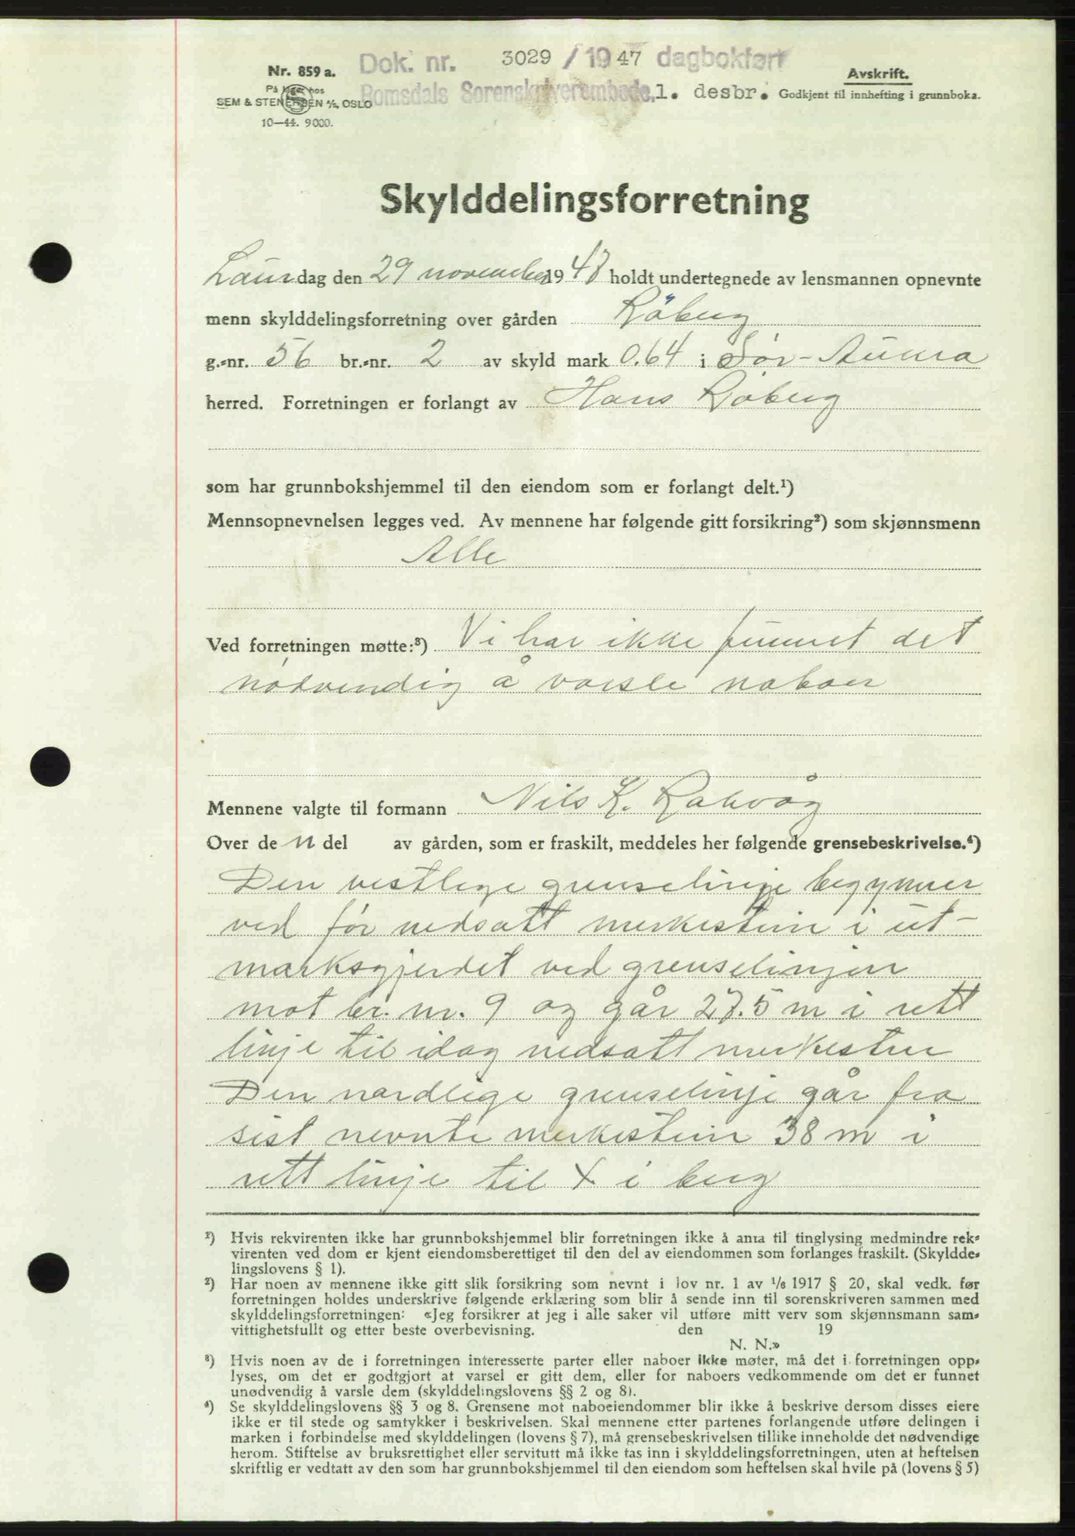 Dok. nr. 3029 / 1947 dagbokført
Romsdals Sorenskriverembede, 1. desbr.
Nr. 859 a.
På lager hos
SEM & STENERSEN A/S, OSLO
10—44. 9000.
Avskrift.
Godkjent til innhefting i grunnboka.
Skylddelingsforretning
Laurdag den 29 november 1947 holdt undertegnede av lensmannen opnevnte
menn skylddelingsforretning over gården Röberg
g.-nr. 56 br.-nr. 2 av skyld mark 0.64 i Sør-Aukra
herred. Forretningen er forlangt av Hans Röberg
som har grunnbokshjemmel til den eiendom som er forlangt delt.¹)
Mennsopnevnelsen legges ved. Av mennene har følgende gitt forsikring²) som skjønnsmenn
Alle
Ved forretningen møtte:³) Vi har ikke funnet det
nødvendig å varsle naboer
Mennene valgte til formann Nils K. Rakvåg
Over den del av gården, som er fraskilt, meddeles her følgende grensebeskrivelse.⁴)
Den vestlege grenselinje begynner
ved før nedsatt merkestein i ut-
marksgjerdet ved grenselinjen
mot br. nr. 9 og går 27.5 m i rett
linje til idag nedsatt merkestein
Den nordlige grenselinje går fra
sist nevnte merkestein 38 m i
rett linje til X i berg
¹) Hvis rekvirenten ikke har grunnbokshjemmel blir forretningen ikke å anta til tinglysing medmindre rek-
virenten ved dom er kjent eiendomsberettiget til den del av eiendommen som forlanges fraskilt. (Skyldde-
lingslovens § 1).
²) Har noen av mennene ikke gitt slik forsikring som nevnt i lov nr. 1 av 1/6 1917 § 20, skal vedk. før
forretningen holdes underskrive følgende erklæring som blir å sende inn til sorenskriveren sammen med
skylddelingsforretningen: «Jeg forsikrer at jeg i alle saker vil utføre mitt verv som skjønnsmann sam-
vittighetsfullt og etter beste overbevisning. den 19
N. N.»
³) Hvis noen av de i forretningen interesserte parter eller naboer ikke møter, må det i forretningen opp-
lyses, om det er godtgjort at varsel er gitt dem, eller for naboers vedkommende om det er funnet
unødvendig å varsle dem (skylddelingslovens §§ 2 og 8).
⁴) Se skylddelingslovens §§ 3 og 8. Grensene mot naboeiendommer blir ikke å beskrive dersom disses eiere
ikke er til stede og samtykker i beskrivelsen. Skal mennene etter partenes forlangende utføre delingen i
marken i forbindelse med skylddelingen (lovens § 7), må grensebeskrivelsen tillike inneholde det nødvendige
herom. Stiftelse av bruksrettighet eller servitutt må ikke tas inn i skylddelingsforretningen, uten at heftelsen
skriftlig er vedtatt av den som har grunnbokshjemmel til den eiendom som heftelsen skal hvile på (lovens § 5)